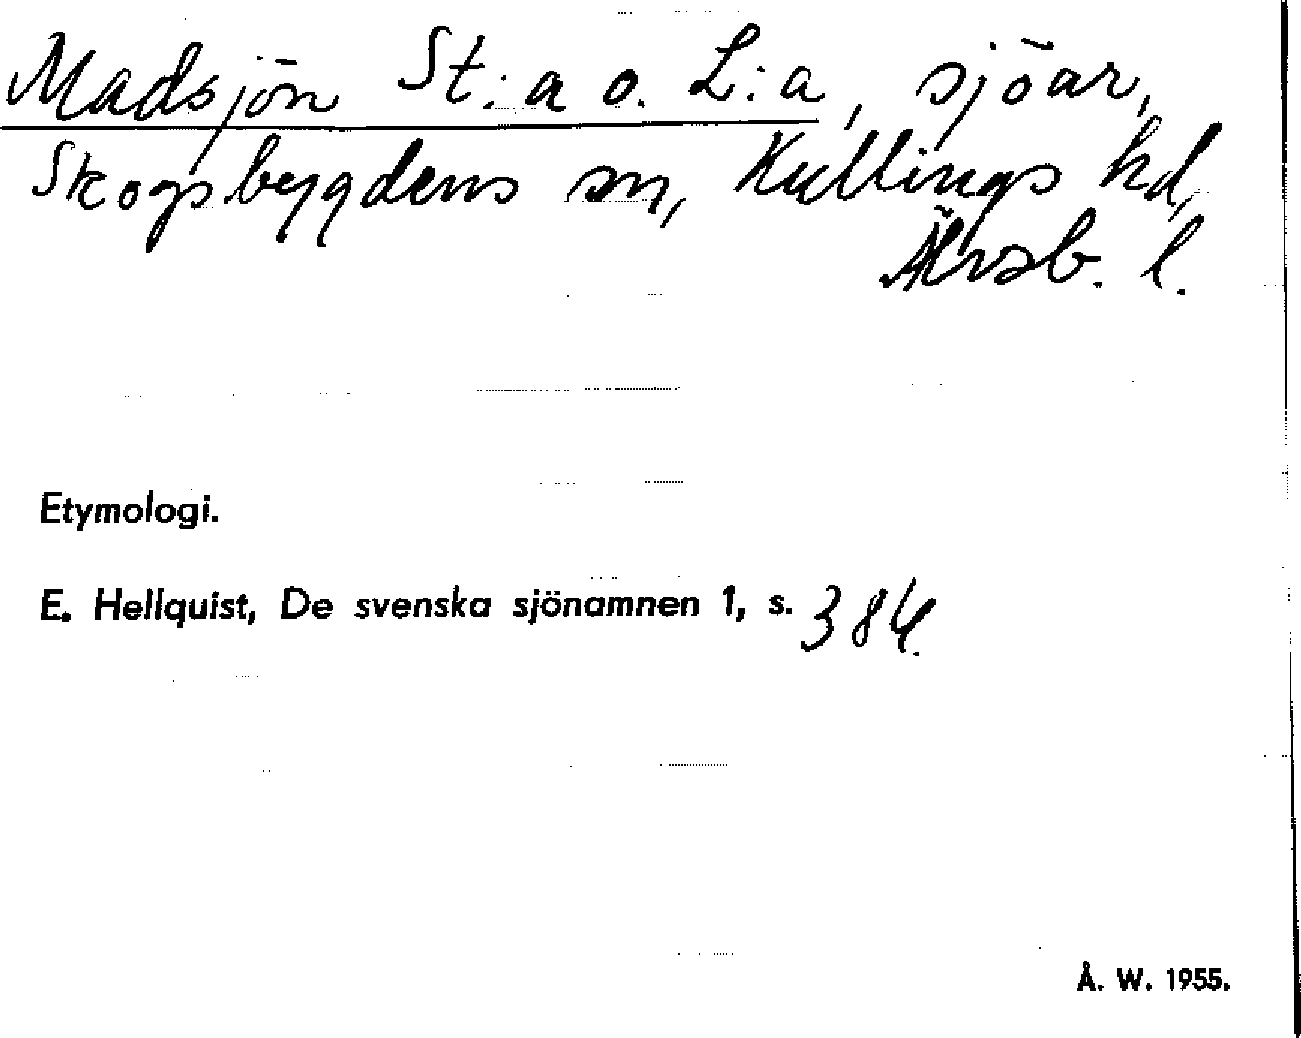 Madsjön St:a o. L:a, sjöar,
Skogsbygdens sn, Kullings hd,
Älvsb. l.
Etymologi.
E. Hellquist, De svenska sjönamnen 1, s. 384.
Å. W. 1955.